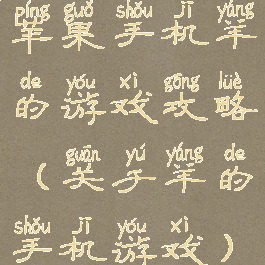 píng guǒ shǒu jī yáng
苹果手机羊
de yóu xì gōng lüè
的游戏攻略
guān yú yáng de
（关于羊的
shǒu jī yóu xì
手机游戏）